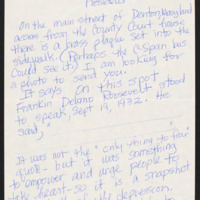 on the main street of Denton, Maryland
across from the County Court house
there is a brass plaque set into the
sidewalk. (Perhaps the C-Span bus
could see it.) I am looking for
a photo to send you.
It says on this spot
Franklin Delano Roosevelt stood
to speak, Sept 19, 1932. He
said,
It was not the "only thing to fear"
quote - but it was something
to empower and urge people to
take heart - so it is a snapshot
of the depression.